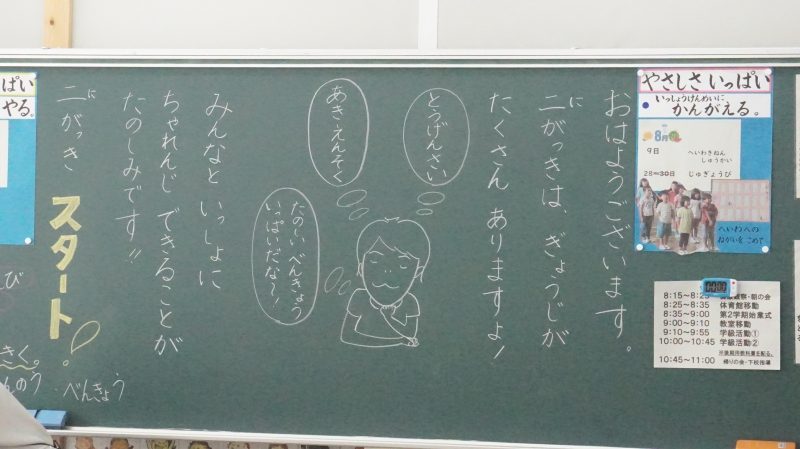 やさしさ いっぱい
いっしょうけんめいに
かんがえる。
8月
9日 へいわきねん
しゅうかい
28〜30日 じゅぎょうび
へいわへの
ねがいをこめて
おはようございます。
に
二がっきは、ぎょうじが
たくさん ありますよ!
とうげんさい
あきえんそく
たのしいべんきょう
いっぱいだな〜!
みんなと いっしょに
ちゃれんじ できることが
たのしみです!!
に
二がっき
スタート!
8:15〜8:25 朝の会
8:25〜8:35 体育館移動
8:35〜9:00 第2学期始業式
9:00〜9:10 教室移動
9:10〜9:55 学級活動①
10:00〜10:45 学級活動②
10:45〜11:00 帰りの会・下校指導
ぱい
やる。
きく。
べんきょう